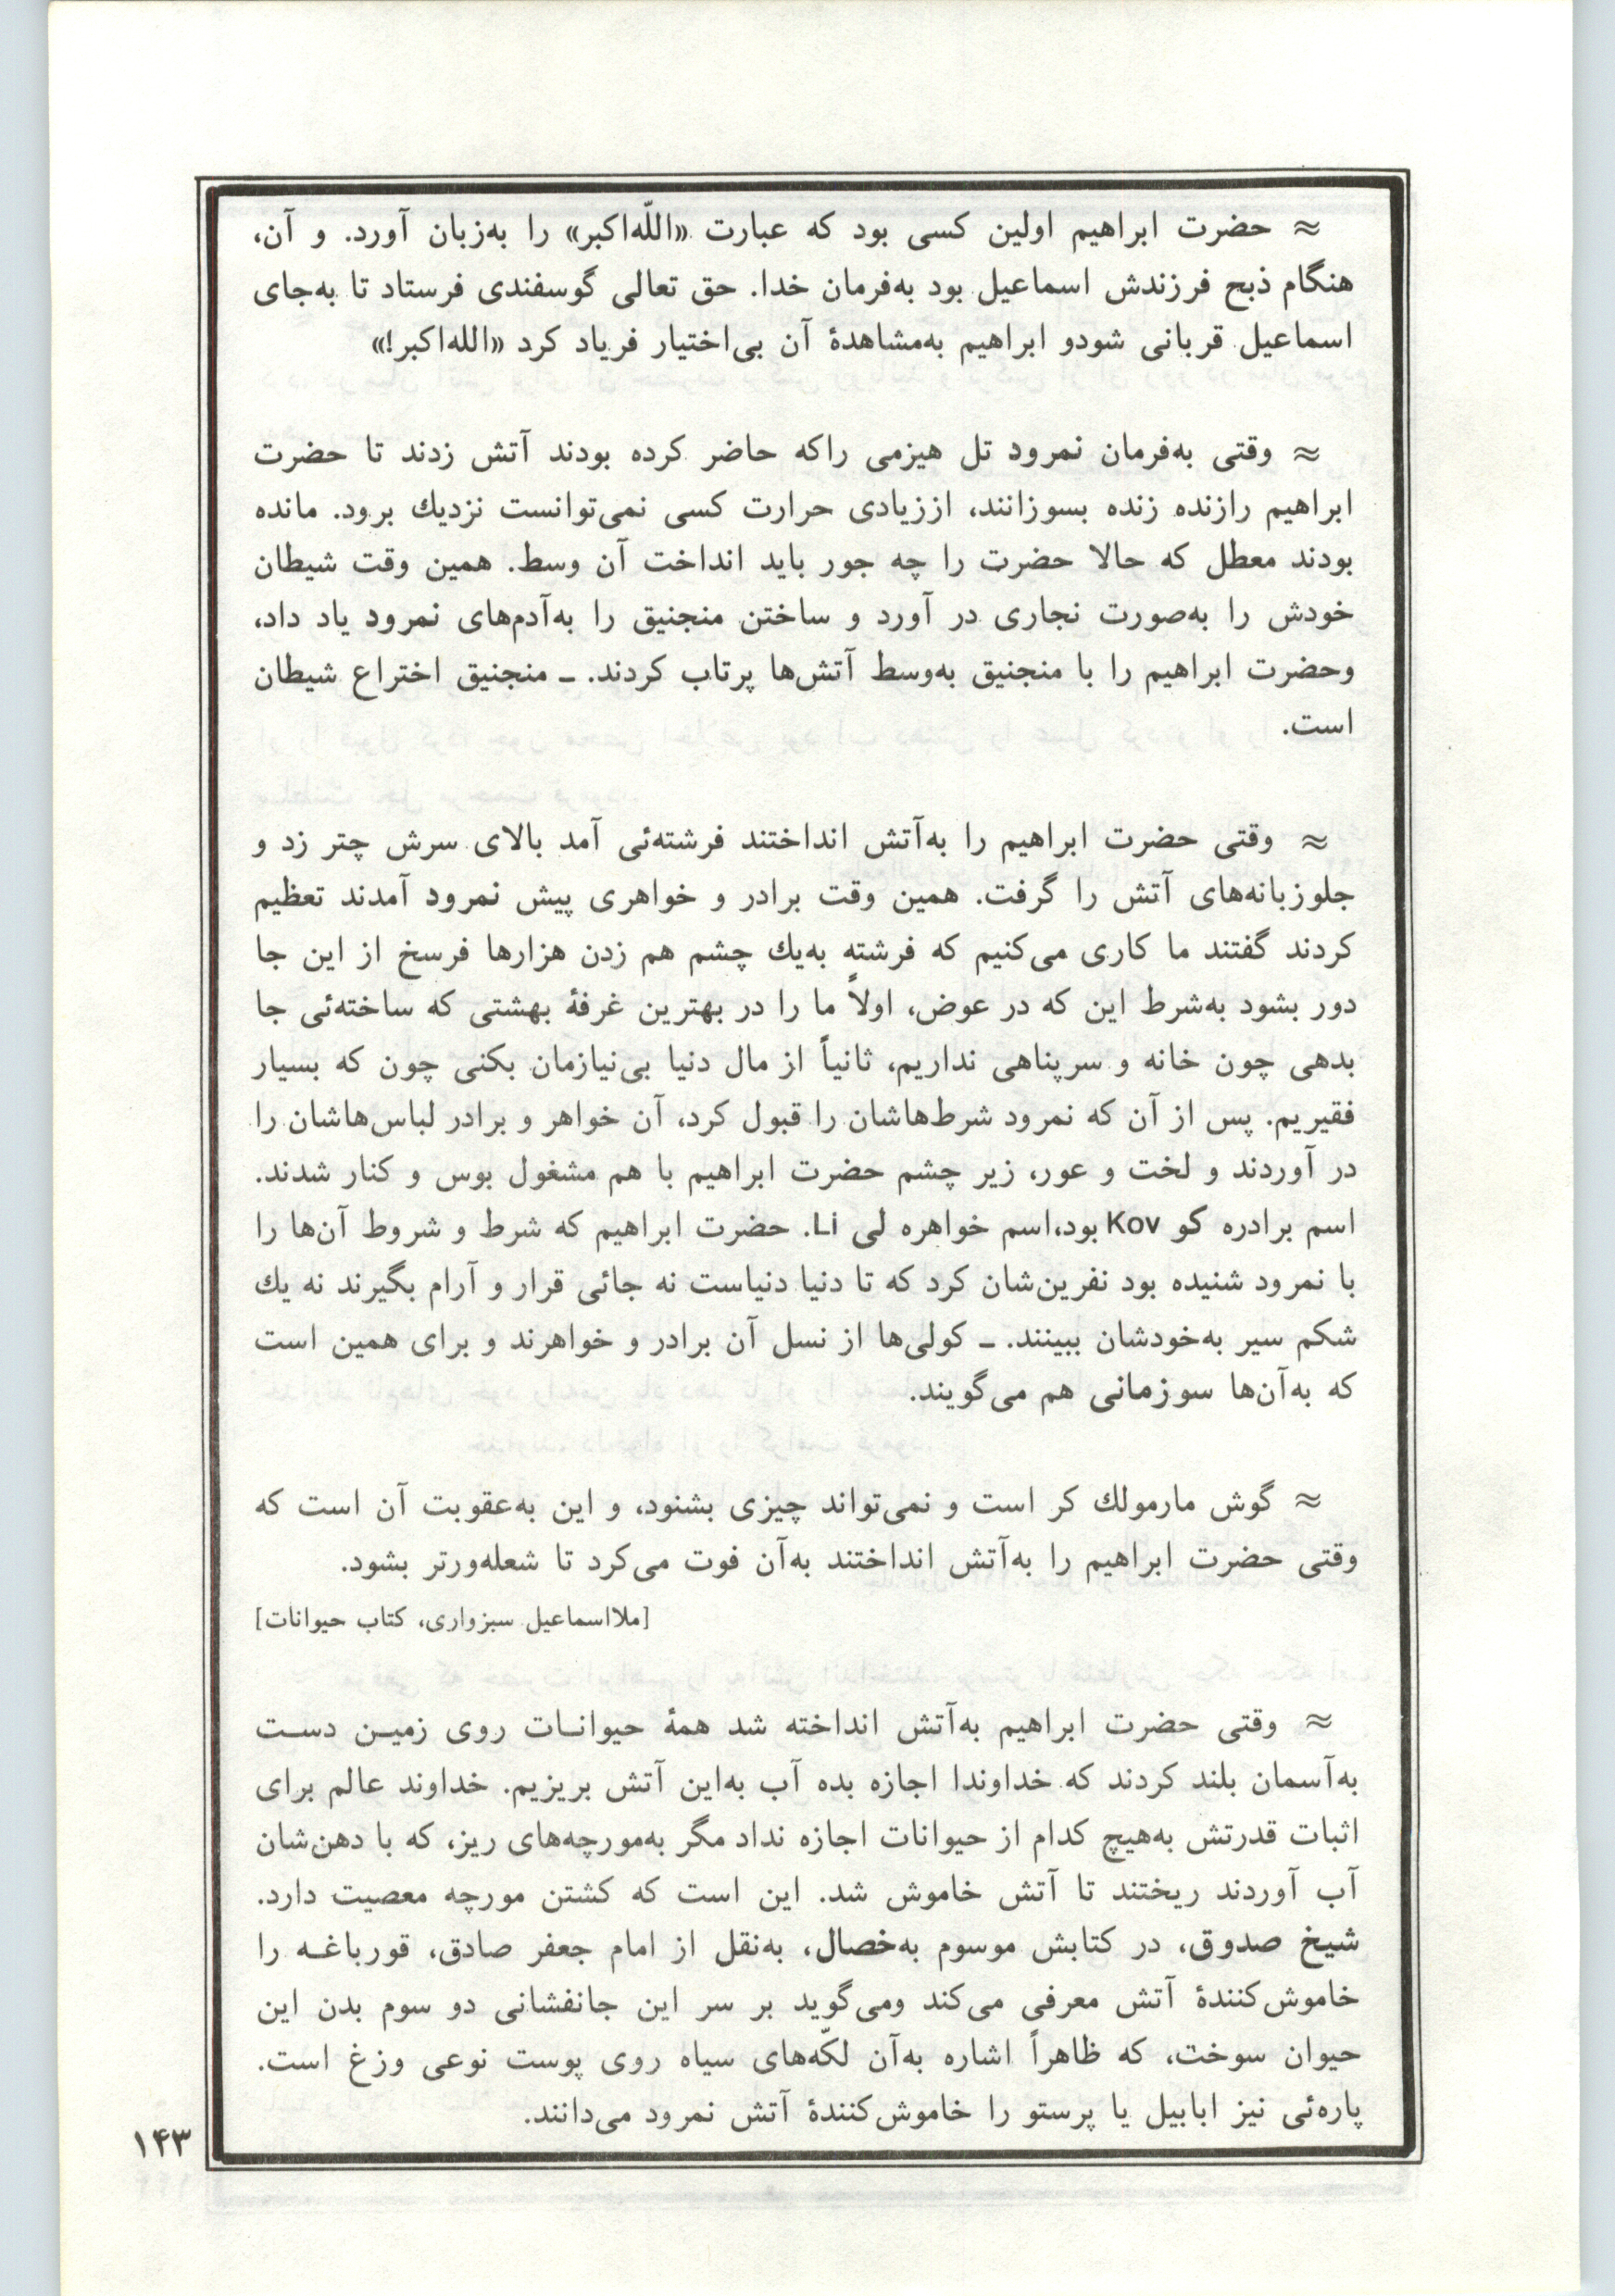 ≈ حضرت ابراهیم اولین کسی بود که عبارت «اللّه‌اکبر» را به‌زبان آورد. و آن،
هنگام ذبح فرزندش اسماعیل بود به‌فرمان خدا. حق تعالی گوسفندی فرستاد تا به‌جای
اسماعیل قربانی شودو ابراهیم به‌مشاهدهٔ آن بی‌اختیار فریاد کرد «الله‌اکبر!»
≈ وقتی به‌فرمان نمرود تل هیزمی راکه حاضر کرده بودند آتش زدند تا حضرت
ابراهیم رازنده زنده بسوزانند، اززیادی حرارت کسی نمی‌توانست نزدیك برود. مانده
بودند معطل که حالا حضرت را چه جور باید انداخت آن وسط. همین وقت شیطان
خودش را به‌صورت نجاری در آورد و ساختن منجنیق را به‌آدم‌های نمرود یاد داد،
وحضرت ابراهیم را با منجنیق به‌وسط آتش‌ها پرتاب کردند. ـ منجنیق اختراع شیطان
است.
≈ وقتی حضرت ابراهیم را به‌آتش انداختند فرشته‌ئی آمد بالای سرش چتر زد و
جلوزبانه‌های آتش را گرفت. همین وقت برادر و خواهری پیش نمرود آمدند تعظیم
کردند گفتند ما کاری می‌کنیم که فرشته به‌یك چشم هم زدن هزارها فرسخ از این جا
دور بشود به‌شرط این که در عوض، اولاً ما را در بهترین غرفهٔ بهشتی که ساخته‌ئی جا
بدهی چون خانه و سرپناهی نداریم، ثانیاً از مال دنیا بی‌نیازمان بکنی چون که بسیار
فقیریم. پس از آن که نمرود شرط‌هاشان را قبول کرد، آن خواهر و برادر لباس‌هاشان را
در آوردند و لخت و عور، زیر چشم حضرت ابراهیم با هم مشغول بوس و کنار شدند.
اسم برادره کو Kov بود،اسم خواهره لی Li. حضرت ابراهیم که شرط و شروط آن‌ها را
با نمرود شنیده بود نفرین‌شان کرد که تا دنیا دنیاست نه جائی قرار و آرام بگیرند نه یك
شکم سیر به‌خودشان ببینند. ـ کولی‌ها از نسل آن برادر و خواهرند و برای همین است
که به‌آن‌ها سوزمانی هم می‌گویند.
≈ گوش مارمولك کر است و نمی‌تواند چیزی بشنود، و این به‌عقوبت آن است که
وقتی حضرت ابراهیم را به‌آتش انداختند به‌آن فوت می‌کرد تا شعله‌ورتر بشود.
[ملااسماعیل سبزواری، کتاب حیوانات]
≈ وقتی حضرت ابراهیم به‌آتش انداخته شد همهٔ حیوانـات روی زمیـن دسـت
به‌آسمان بلند کردند که خداوندا اجازه بده آب به‌این آتش بریزیم. خداوند عالم برای
اثبات قدرتش به‌هیچ کدام از حیوانات اجازه نداد مگر به‌مورچه‌های ریز، که با دهن‌شان
آب آوردند ریختند تا آتش خاموش شد. این است که کشتن مورچه معصیت دارد.
شیخ صدوق، در کتابش موسوم به‌خصال، به‌نقل از امام جعفر صادق، قورباغـه را
خاموش‌کنندهٔ آتش معرفی می‌کند ومی‌گوید بر سر این جانفشانی دو سوم بدن این
حیوان سوخت، که ظاهراً اشاره به‌آن لکّه‌های سیاه روی پوست نوعی وزغ است.
پاره‌ئی نیز ابابیل یا پرستو را خاموش‌کنندهٔ آتش نمرود می‌دانند.
۱۴۳